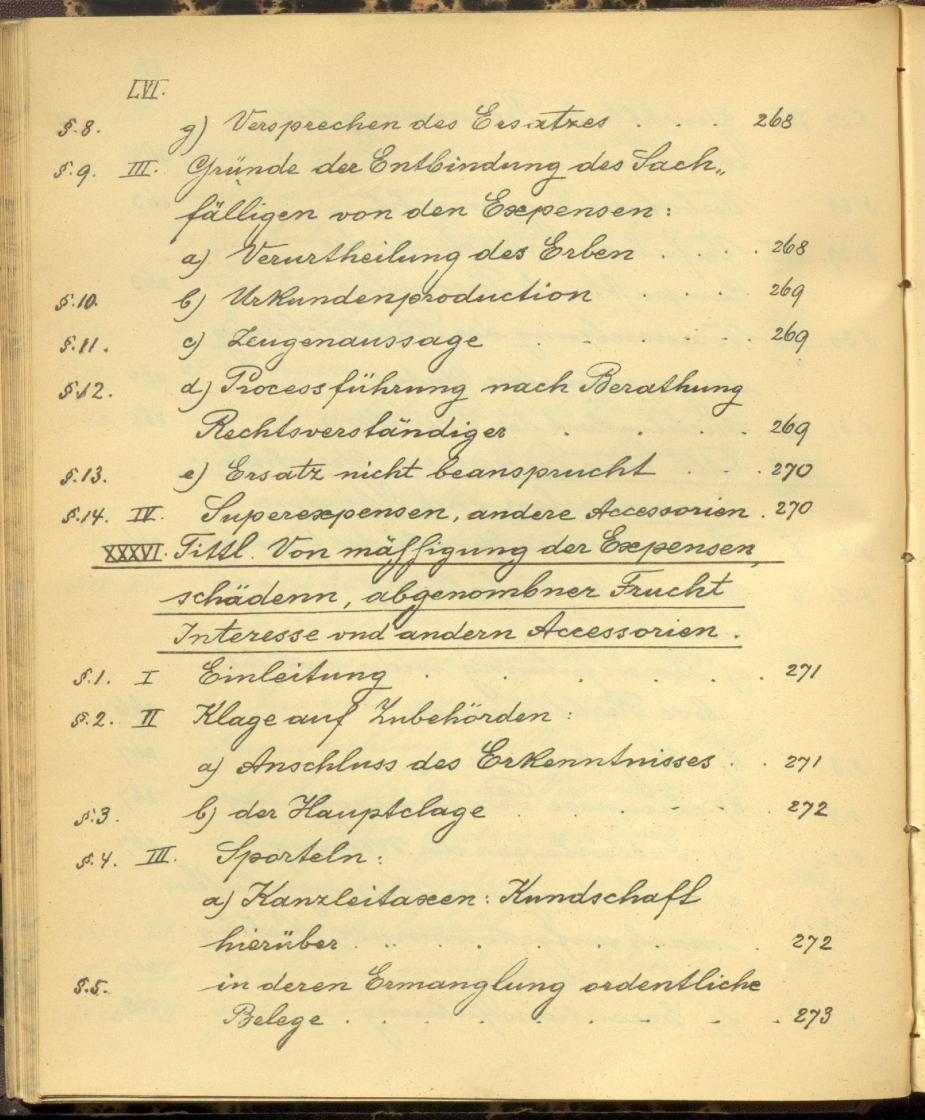 LVI.
§.8. g) Versprechen des Ersatzes . . . 268
§.9. III. Gründe der Entbindung des Sach„
fälligen von den Expensen:
a) Verurtheilung des Erben . . . 268
§.10. b) Urkundenproduction . . . 269
§.11. c) Zeugenaussage . . . . . 269
§.12. d) Processführung nach Berathung
Rechtsverständiger . . . . 269
§.13. e) Ersatz nicht beansprucht . . . 270
§.14. IV. Superexpensen, andere Accessorien . 270
XXXVI. Tittl. Von mässigung der Expensen,
schädenn, abgenombner Frucht
Interesse vnd andern Accessorien.
§.1. I Einleitung . . . . . . 271
§.2. II Klage auf Zubehörden:
a) Anschluss des Erkenntnisses . . 271
§.3. b) der Hauptclage . . . . 272
§.4. III. Sporteln:
a) Kanzleitaxen: Kundschaft
hierüber . . . . . . . 272
§.5. in deren Ermanglung ordentliche
Belege . . . . . . . . 273